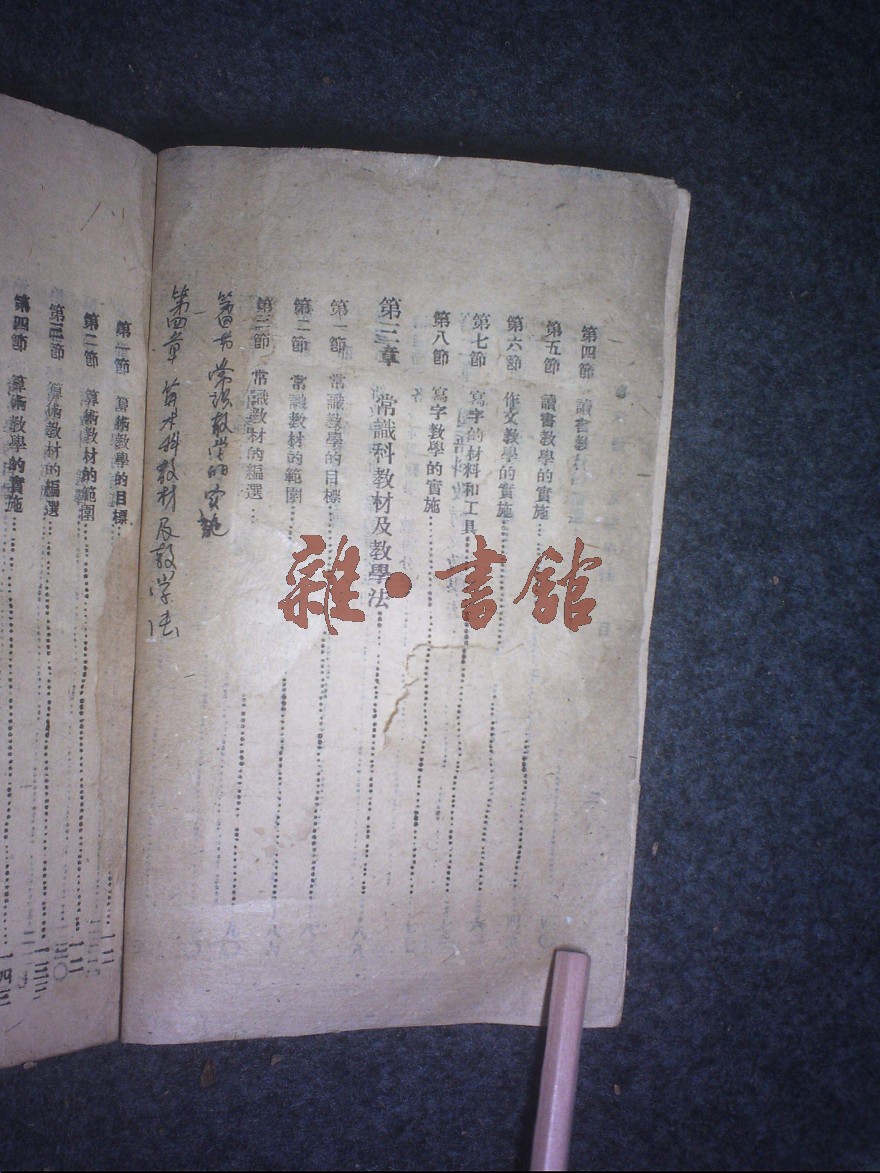 第四節 讀書教材
第五節 讀書教學的實施
第六節 作文教學的實施
第七節 寫字的材料和工具
第八節 寫字教學的實施
第三章 常識科教材及教學法
第一節 常識教學的目標
第二節 常識教材的範圍
第三節 常識教材的編選
常识教学的实施
第四章 算术科教材及教学法
第一節 算術教學的目標
第二節 算術教材的範圍
第三節 算術教材的編選
第四節 算術教學的實施
雜·書館